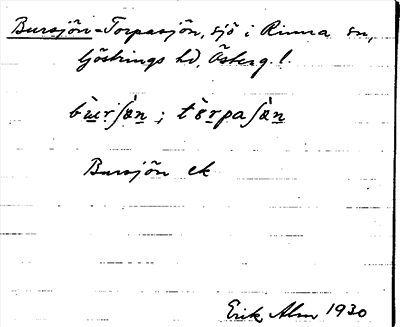 Bursjön-Torpasjön, sjö i Rinna sn,
Göstrings hd, Österg. l.
bùrʃæ̀n ; tòrpaʃæ̀n
Bursjön ek
Erik Alm 1930